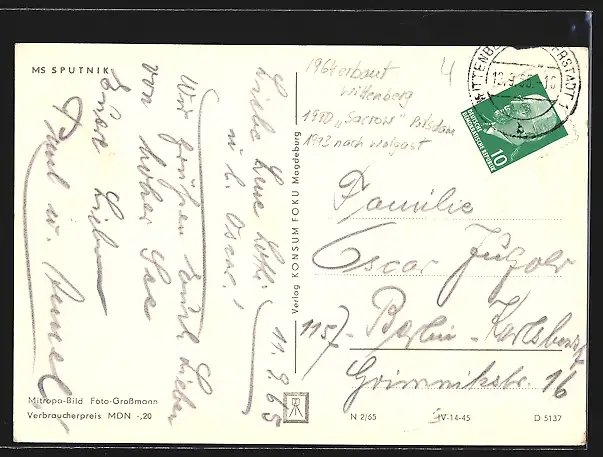 MS SPUTNIK
1964 erbaut
Wittenberg
1980 „Sacrow" Potsdam
1993 nach Wolgast
4
WITTENBERG LUTHERSTADT 1
13.9.65.-10
b
DEUTSCHE
DEMOKRATISCHE REPUBLIK
10
11.9.65
Liebe Lotti
u. l. Oscar!
Wir grüßen Euch Lieben
von hoher See
Eure Lieben
Paul u.
Verlag KONSUM FOKU Magdeburg
Familie
Oscar
1157 Berlin-Karlshorst
Grimnitzstr. 16
Mitropa-Bild Foto-Großmann
Verbraucherpreis MDN -,20
N 2/65
IV-14-45
D 5137